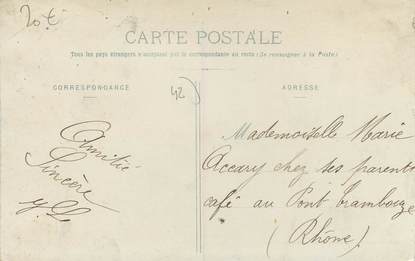 20 €
CARTE POSTALE
Tous les pays étrangers n'acceptent pas la correspondance au recto (Se renseigner à la Poste)
CORRESPONDANCE
ADRESSE
42)
Amitié
Sincère
Mademoiselle Marie
Accary chez ses parents
café au Pont Trambouze
(Rhône)